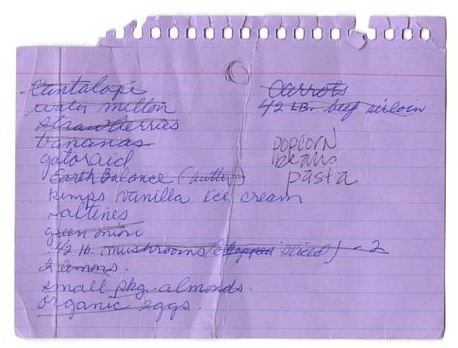 Cantalope
water millon
strawberries
bananas
gatoraid
Earth Balance (butter)
Kemps vanilla ice cream
saltines
green onion
1/2 lb. mushrooms (chopped sliced) - 2
2 lemons.
small pkg almonds.
organic eggs.
Carrots
1/2 LB. beef sirloin
popcorn
beans
pasta